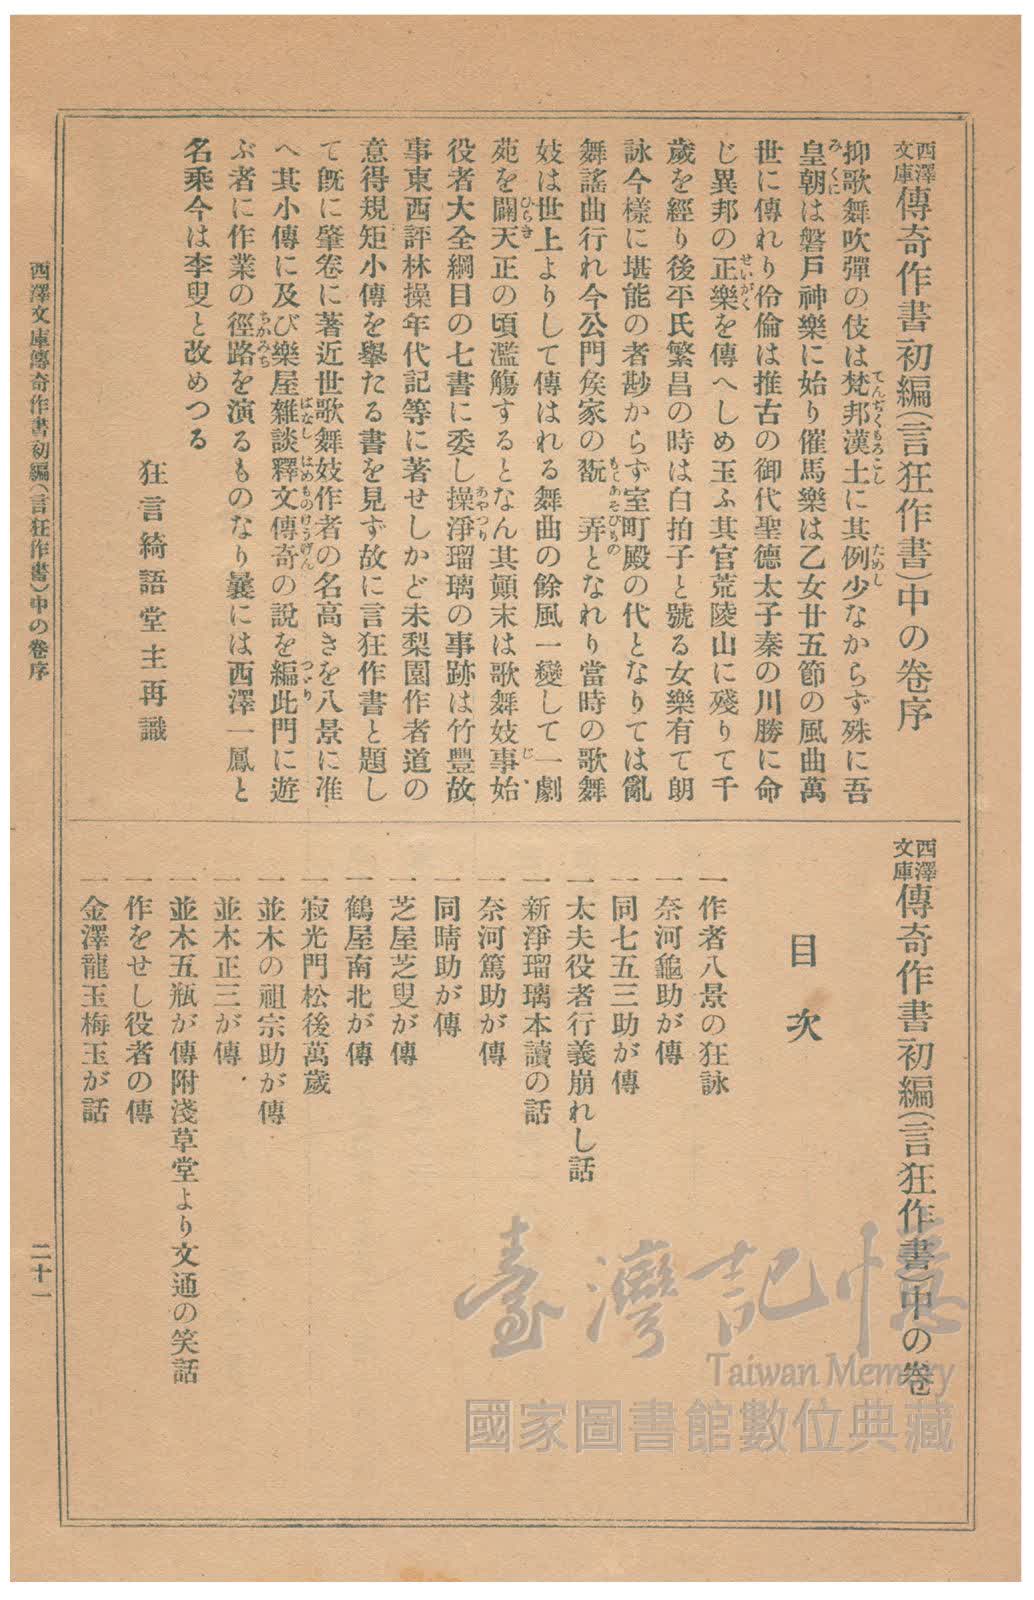 西澤文庫傳奇作書初編(言狂作書)中の卷序
抑歌舞吹彈の伎は梵邦漢土に其例少なからず殊に吾
皇朝は磐戸神樂に始り催馬樂は乙女廿五節の風曲萬
世に傳れり伶倫は推古の御代聖德太子秦の川勝に命
じ異邦の正樂を傳へしめ玉ふ其官荒陵山に殘りて千
歲を經り後平氏繁昌の時は白拍子と號る女樂有て朗
詠今樣に堪能の者尠からず室町殿の代となりては亂
舞謠曲行れ今公門矦家の翫弄となれり當時の歌舞
妓は世上よりして傳はれる舞曲の餘風一變して一劇
苑を闢天正の頃濫觴するとなん其顚末は歌舞妓事始
役者大全綱目の七書に委し操淨瑠璃の事跡は竹豐故
事東西評林操年代記等に著せしかど未梨園作者道の
意得規矩小傳を擧たる書を見ず故に言狂作書と題し
て旣に肇卷に著近世歌舞妓作者の名高きを八景に准
へ其小傳に及び樂屋雜談釋文傳奇の說を編此門に遊
ぶ者に作業の徑路を演るものなり曩には西澤一鳳と
名乘今は李叟と改めつる
狂言綺語堂主再識
西澤文庫傳奇作書初編(言狂作書)中の卷
目次
一作者八景の狂詠
一奈河龜助が傳
一同七五三助が傳
一太夫役者行義崩れし話
一新淨瑠璃本讀の話
一奈河篤助が傳
一同晴助が傳
一芝屋芝叟が傳
一鶴屋南北が傳
一寂光門松後萬歲
一並木の祖宗助が傳
一並木正三が傳
一並木五瓶が傳附淺草堂より文通の笑話
一作をせし役者の傳
一金澤龍玉梅玉が話
西澤文庫傳奇作書初編(言狂作書)中の卷序
二十一
臺灣記憶
Taiwan Memory
國家圖書館數位典藏